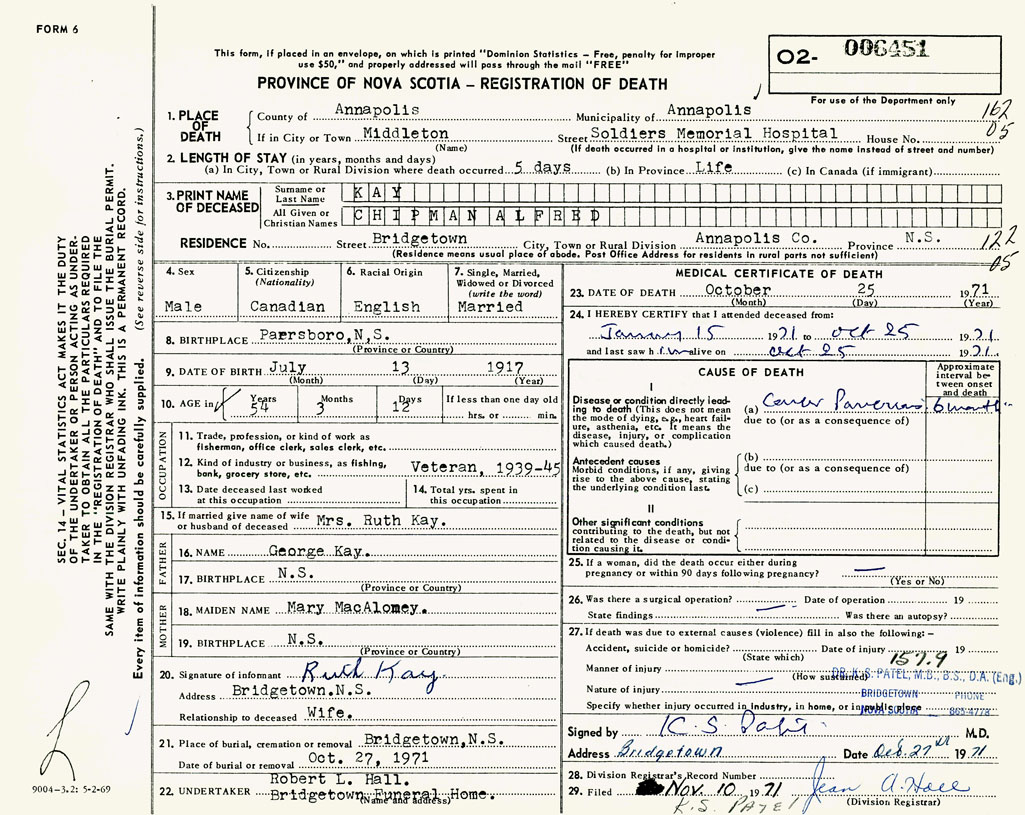 FORM 6
This form, if placed in an envelope, on which is printed "Dominion Statistics – Free, penalty for improper
use $50," and properly addressed will pass through the mail "FREE"
PROVINCE OF NOVA SCOTIA – REGISTRATION OF DEATH
O2- 006451
For use of the Department only
162
05
1. PLACE OF DEATH
County of Annapolis Municipality of Annapolis
If in City or Town Middleton Street Soldiers Memorial Hospital House No.
(Name) (If death occurred in a hospital or institution, give the name instead of street and number)
2. LENGTH OF STAY (in years, months and days)
(a) In City, Town or Rural Division where death occurred 5 days (b) In Province Life (c) In Canada (if immigrant)
3. PRINT NAME OF DECEASED
Surname or Last Name KAY
All Given or Christian Names CHIPMAN ALFRED
RESIDENCE No. Street Bridgetown City, Town or Rural Division Annapolis Co. Province N.S.
(Residence means usual place of abode. Post Office Address for residents in rural parts not sufficient)
122
05
4. Sex
Male
5. Citizenship
(Nationality)
Canadian
6. Racial Origin
English
7. Single, Married,
Widowed or Divorced
(write the word)
Married
8. BIRTHPLACE Parrsboro,N,S.
(Province or Country)
9. DATE OF BIRTH July 13 1917
(Month) (Day) (Year)
10. AGE in Years 54 Months 3 Days 12 If less than one day old
hrs. or min.
OCCUPATION
11. Trade, profession, or kind of work as
fisherman, office clerk, sales clerk, etc.
12. Kind of industry or business, as fishing,
bank, grocery store, etc. Veteran, 1939-45
13. Date deceased last worked
at this occupation
14. Total yrs. spent in
this occupation
15. If married give name of wife
or husband of deceased Mrs. Ruth Kay.
FATHER
16. NAME George Kay.
17. BIRTHPLACE N.S.
(Province or Country)
MOTHER
18. MAIDEN NAME Mary MacAlomey.
19. BIRTHPLACE N.S.
(Province or Country)
20. Signature of informant Ruth Kay.
Address Bridgetown.N.S.
Relationship to deceased Wife.
21. Place of burial, cremation or removal Bridgetown,N.S.
Date of burial or removal Oct. 27, 1971
22. UNDERTAKER Robert L. Hall.
Bridgetown Funeral Home.
(Name and address)
MEDICAL CERTIFICATE OF DEATH
23. DATE OF DEATH October 25 1971
(Month) (Day) (Year)
24. I HEREBY CERTIFY that I attended deceased from:
January 15 1971 to oct 25 1971
and last saw him alive on oct 25 1971.
CAUSE OF DEATH
Approximate
interval be-
tween onset
and death
I
Disease or condition directly lead-
ing to death (This does not mean
the mode of dying, e.g., heart fail-
ure, asthenia, etc. It means the
disease, injury, or complication
which caused death.)
(a) Cancer Pancreas 6 months
due to (or as a consequence of)
Antecedent causes
Morbid conditions, if any, giving
rise to the above cause, stating
the underlying condition last.
(b)
due to (or as a consequence of)
(c)
II
Other significant conditions
contributing to the death, but not
related to the disease or condi-
tion causing it.
25. If a woman, did the death occur either during
pregnancy or within 90 days following pregnancy?
(Yes or No)
26. Was there a surgical operation? Date of operation 19
State findings Was there an autopsy?
27. If death was due to external causes (violence) fill in also the following: –
Accident, suicide or homicide? Date of injury 19
(State which)
157.9
Manner of injury (How sustained)
DR. K. S. PATEL, M.B., B.S., D.A. (Eng.)
Nature of injury
BRIDGETOWN PHONE
Specify whether injury occurred in industry, in home, or in public place
NOVA SCOTIA 665-4778
Signed by K. S. Patel M.D.
Address Bridgetown Date Oct. 27th 1971
28. Division Registrar's Record Number
29. Filed Nov. 10 1971 Jean A. Hall
(Division Registrar)
K.S. PATEL
SEC. 14 – VITAL STATISTICS ACT MAKES IT THE DUTY
OF THE UNDERTAKER OR PERSON ACTING AS UNDER-
TAKER TO OBTAIN ALL THE PARTICULARS REQUIRED
IN THE "REGISTRATION OF DEATH" AND TO FILE THE
SAME WITH THE DIVISION REGISTRAR WHO SHALL ISSUE THE BURIAL PERMIT.
WRITE PLAINLY WITH UNFADING INK. THIS IS A PERMANENT RECORD.
Every item of information should be carefully supplied. (See reverse side for instructions.)
9004-3.2: 5-2-69